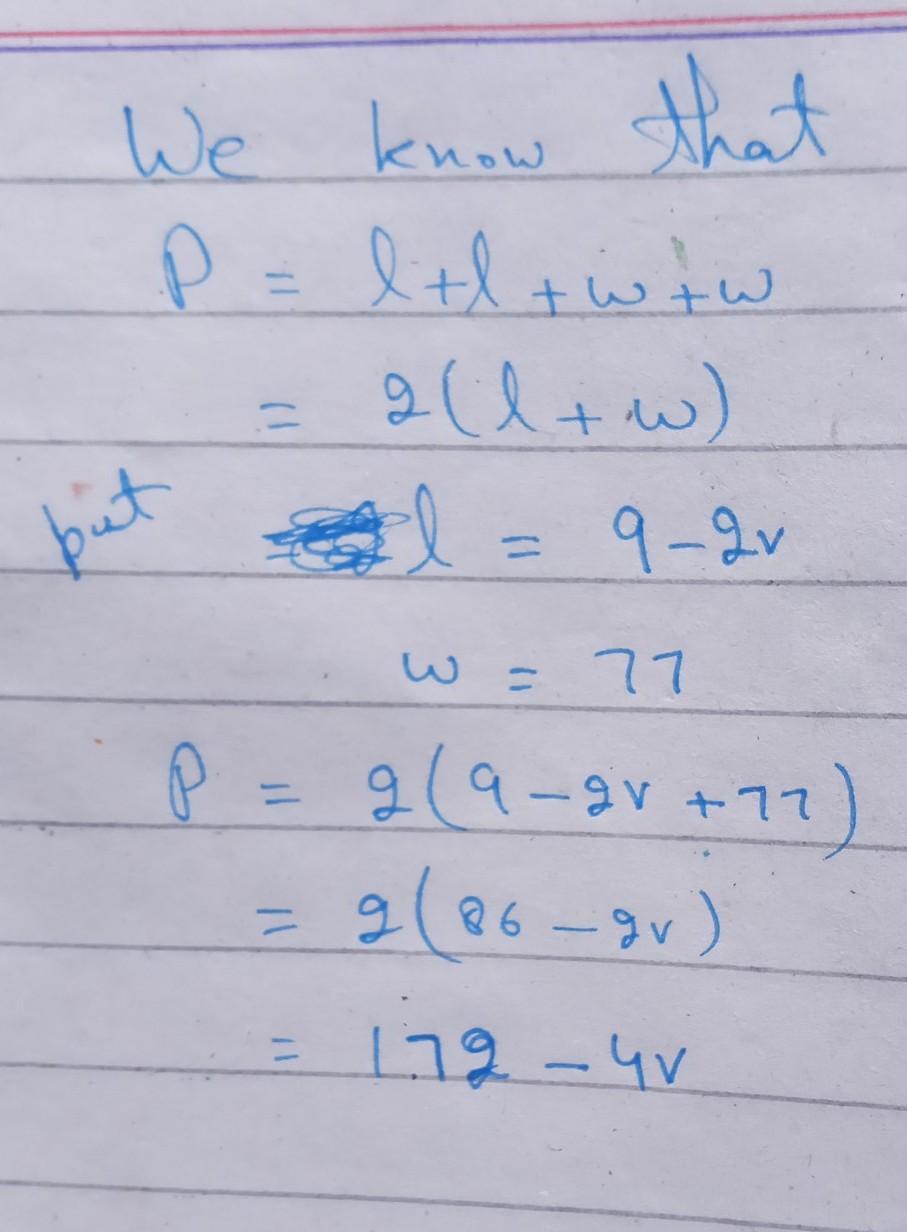 We know that
P = l+l+w+w
= 2(l+w)
put l = 9-2v
w = 77
P = 2(9-2v+77)
= 2(86-2v)
= 172-4v